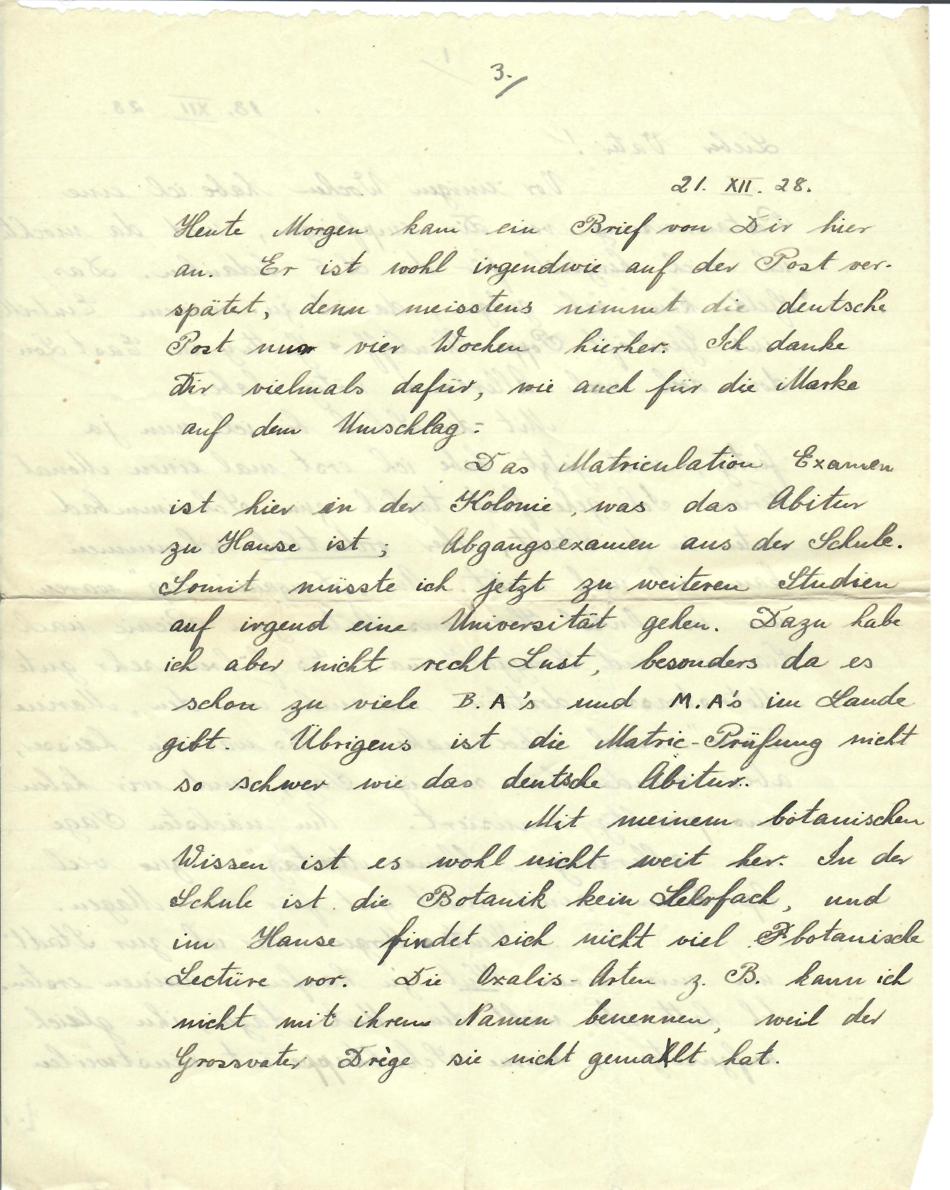 3.
21. XII. 28.
Heute Morgen kam ein Brief von Dir hier
an. Er ist wohl irgendwie auf der Post ver-
spätet, denn meisstens nimmt die deutsche
Post nur vier Wochen hierher. Ich danke
Dir vielmals dafür, wie auch für die Marke
auf dem Umschlag.
Das Matriculation Examen
ist hier in der Kolonie, was das Abitur
zu Hause ist; Abgangsexamen aus der Schule.
Somit müsste ich jetzt zu weiteren Studien
auf irgend eine Universität gehen. Dazu habe
ich aber nicht recht Lust, besonders da es
schon zu viele B.A's und M.A's im Lande
gibt. Übrigens ist die Matric-Prüfung nicht
so schwer wie das deutsche Abitur.
Mit meinem botanischen
Wissen ist es wohl nicht weit her. In der
Schule ist die Botanik kein Lehrfach, und
im Hause findet sich nicht viel botanische
Lectüre vor. Die Oxalis-Arten z. B. kann ich
nicht mit ihrem Namen benennen, weil der
Grossvater Drège sie nicht gemalt hat.